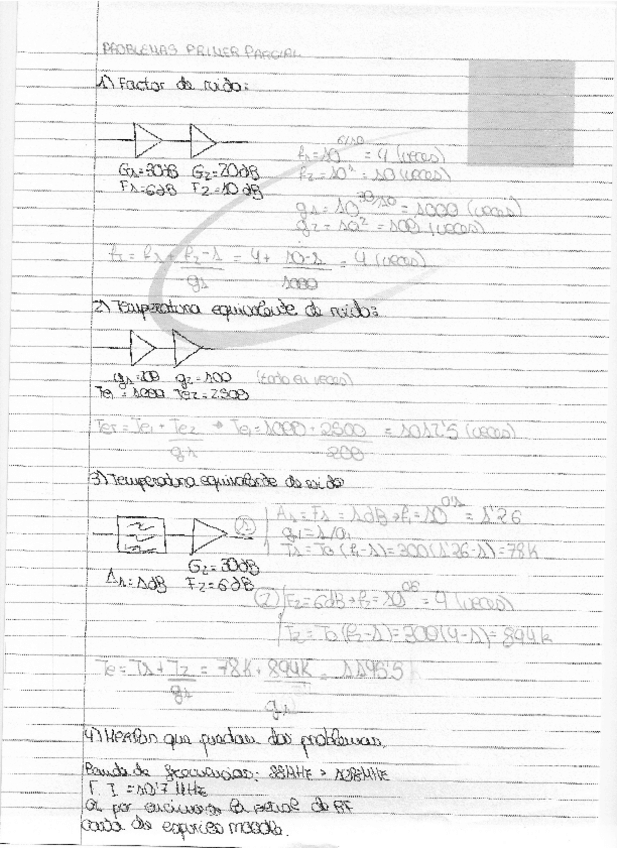 PROBLEMAS PRIMER PARCIAL
1) Factor de ruido:
G1=30dB G2=20dB
F1=6dB F2=10dB
f1=10^6/10 = 4 (veces)
f2=10^1 = 10 (veces)
g1=10^30/10 = 1000 (veces)
g2=10^2 = 100 (veces)
f2-1 = 4+ 10-1 = 4 (veces)
g1 1000
2) Temperatura equivalente de ruido:
g2=100 (todo en veces)
Te1 = 1000
TeT=Te1+Te2 → 1000+ = 1012'5 (veces)
g1 200
3) Temperatura equivalente de ruido
A1=1dB
G2=30dB
F2=6dB
(1) A1=F1=1dB→f1=10^0'1=1'26
T1=T0(f1-1)=300(1'26-1)=78K
(2) F2=6dB→f2=10^0.6=4 (veces)
T2=T0(f2-1)=300(4-1)=894K
Te=T1+T2=78K+894K=
g1 g1
4) que quedan dos problemas.
Banda de frecuencias: 88MHz > 108MHz
F.I.=10'7MHz
OL por encima de la señal de RF